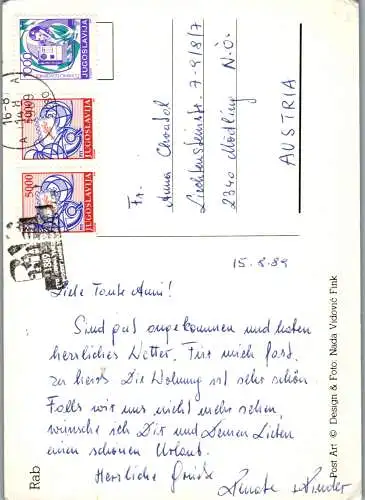 JUGOSLAVIJA
JUGOSLAVIJA
5000
JUGOSLAVIJA
5000
Fr.
Anna
Liechtensteinstr. 7-9/8/7
2340 Mödling N.Ö.
AUSTRIA
15.8.89
Liebe Tante Anni!
Sind gut angekommen und haben
herrliches Wetter. Für mich fast
zu heiß. Die Wohnung ist sehr schön
Falls wir uns nicht mehr sehen,
wünsche ich Dir und Deinen Lieben
einen schönen Urlaub.
Herrliche Grüße
Renate
Rab
Post Art © Design & Foto: Nada Vidović Fink